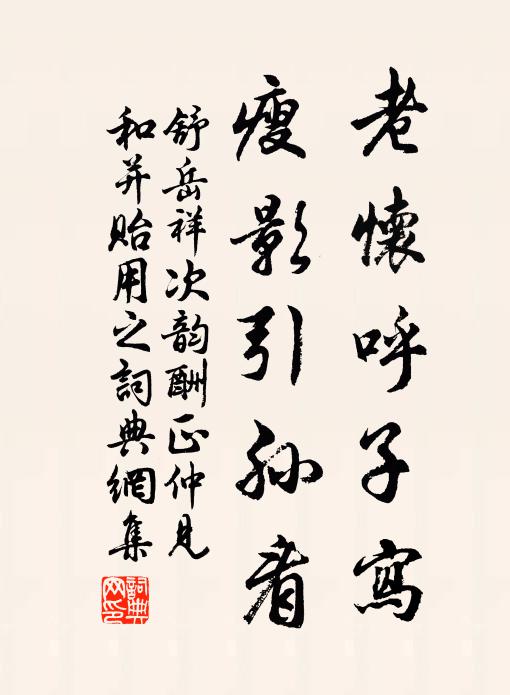 老懷呼子寫
瘦影引孫看
舒岳祥次韵酬正仲見
和并貽用之詞典網集
詞典網印